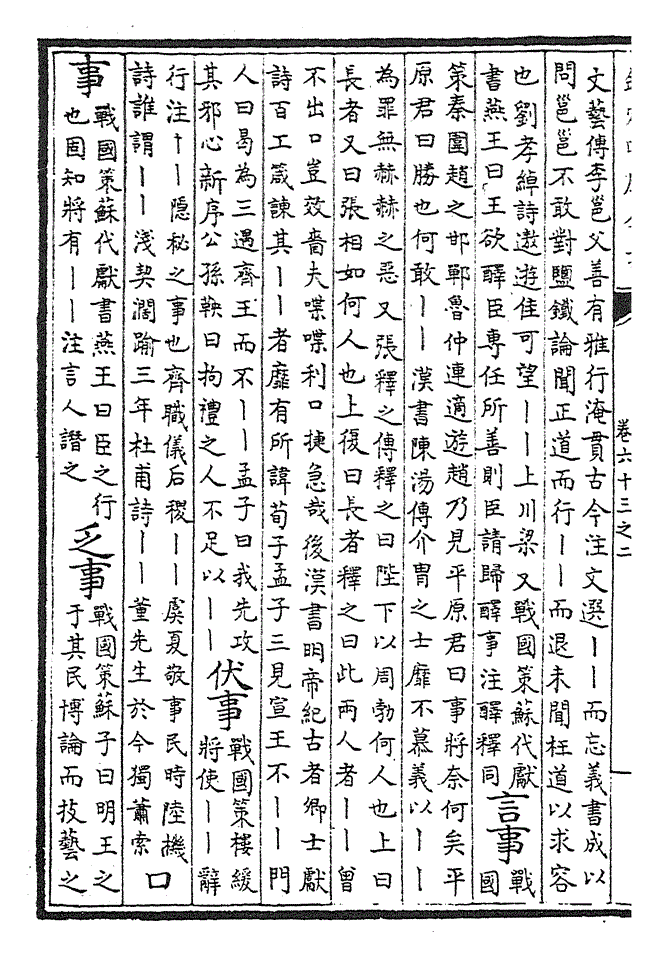 卷六十三之二
文藝傳李邕父善有雅行淹貫古今注文選丨丨而忘義書成以
問邕邕不敢對鹽鐵論聞正道而行丨丨而退未聞枉道以求容
也劉孝綽詩遨遊佳可望丨丨上川梁又戰國策蘇代獻
書燕王曰王欲醳臣專任所善則臣請歸醳事注醳釋同
言事
戰
國
策秦圍趙之邯鄲魯仲連適遊趙乃見平原君曰事將奈何矣平
原君曰勝也何敢丨丨漢書陳湯傳介胄之士靡不慕義以丨丨
為罪無赫赫之惡又張釋之傳釋之曰陛下以周勃何人也上曰
長者又曰張相如何人也上復曰長者釋之曰此兩人者丨丨曾
不出口豈效嗇夫喋喋利口捷急哉後漢書明帝紀古者卿士獻
詩百工箴諫其丨丨者靡有所諱荀子孟子三見宣王不丨丨門
人曰曷為三遇齊王而不丨丨孟子曰我先攻
其邪心新序公孫鞅曰拘禮之人不足以丨丨
伏事
戰國策樓緩
將使丨丨辭
行注丨丨隱秘之事也齊職儀后稷丨丨虞夏敬事民時陸機
詩誰謂丨丨淺契濶踰三年杜甫詩丨丨董先生於今獨蕭索
口
事
戰國策蘇代獻書燕王曰臣之行
也固知將有丨丨注言人譖之
乏事
戰國策蘇子曰明王之
于其民博論而技藝之